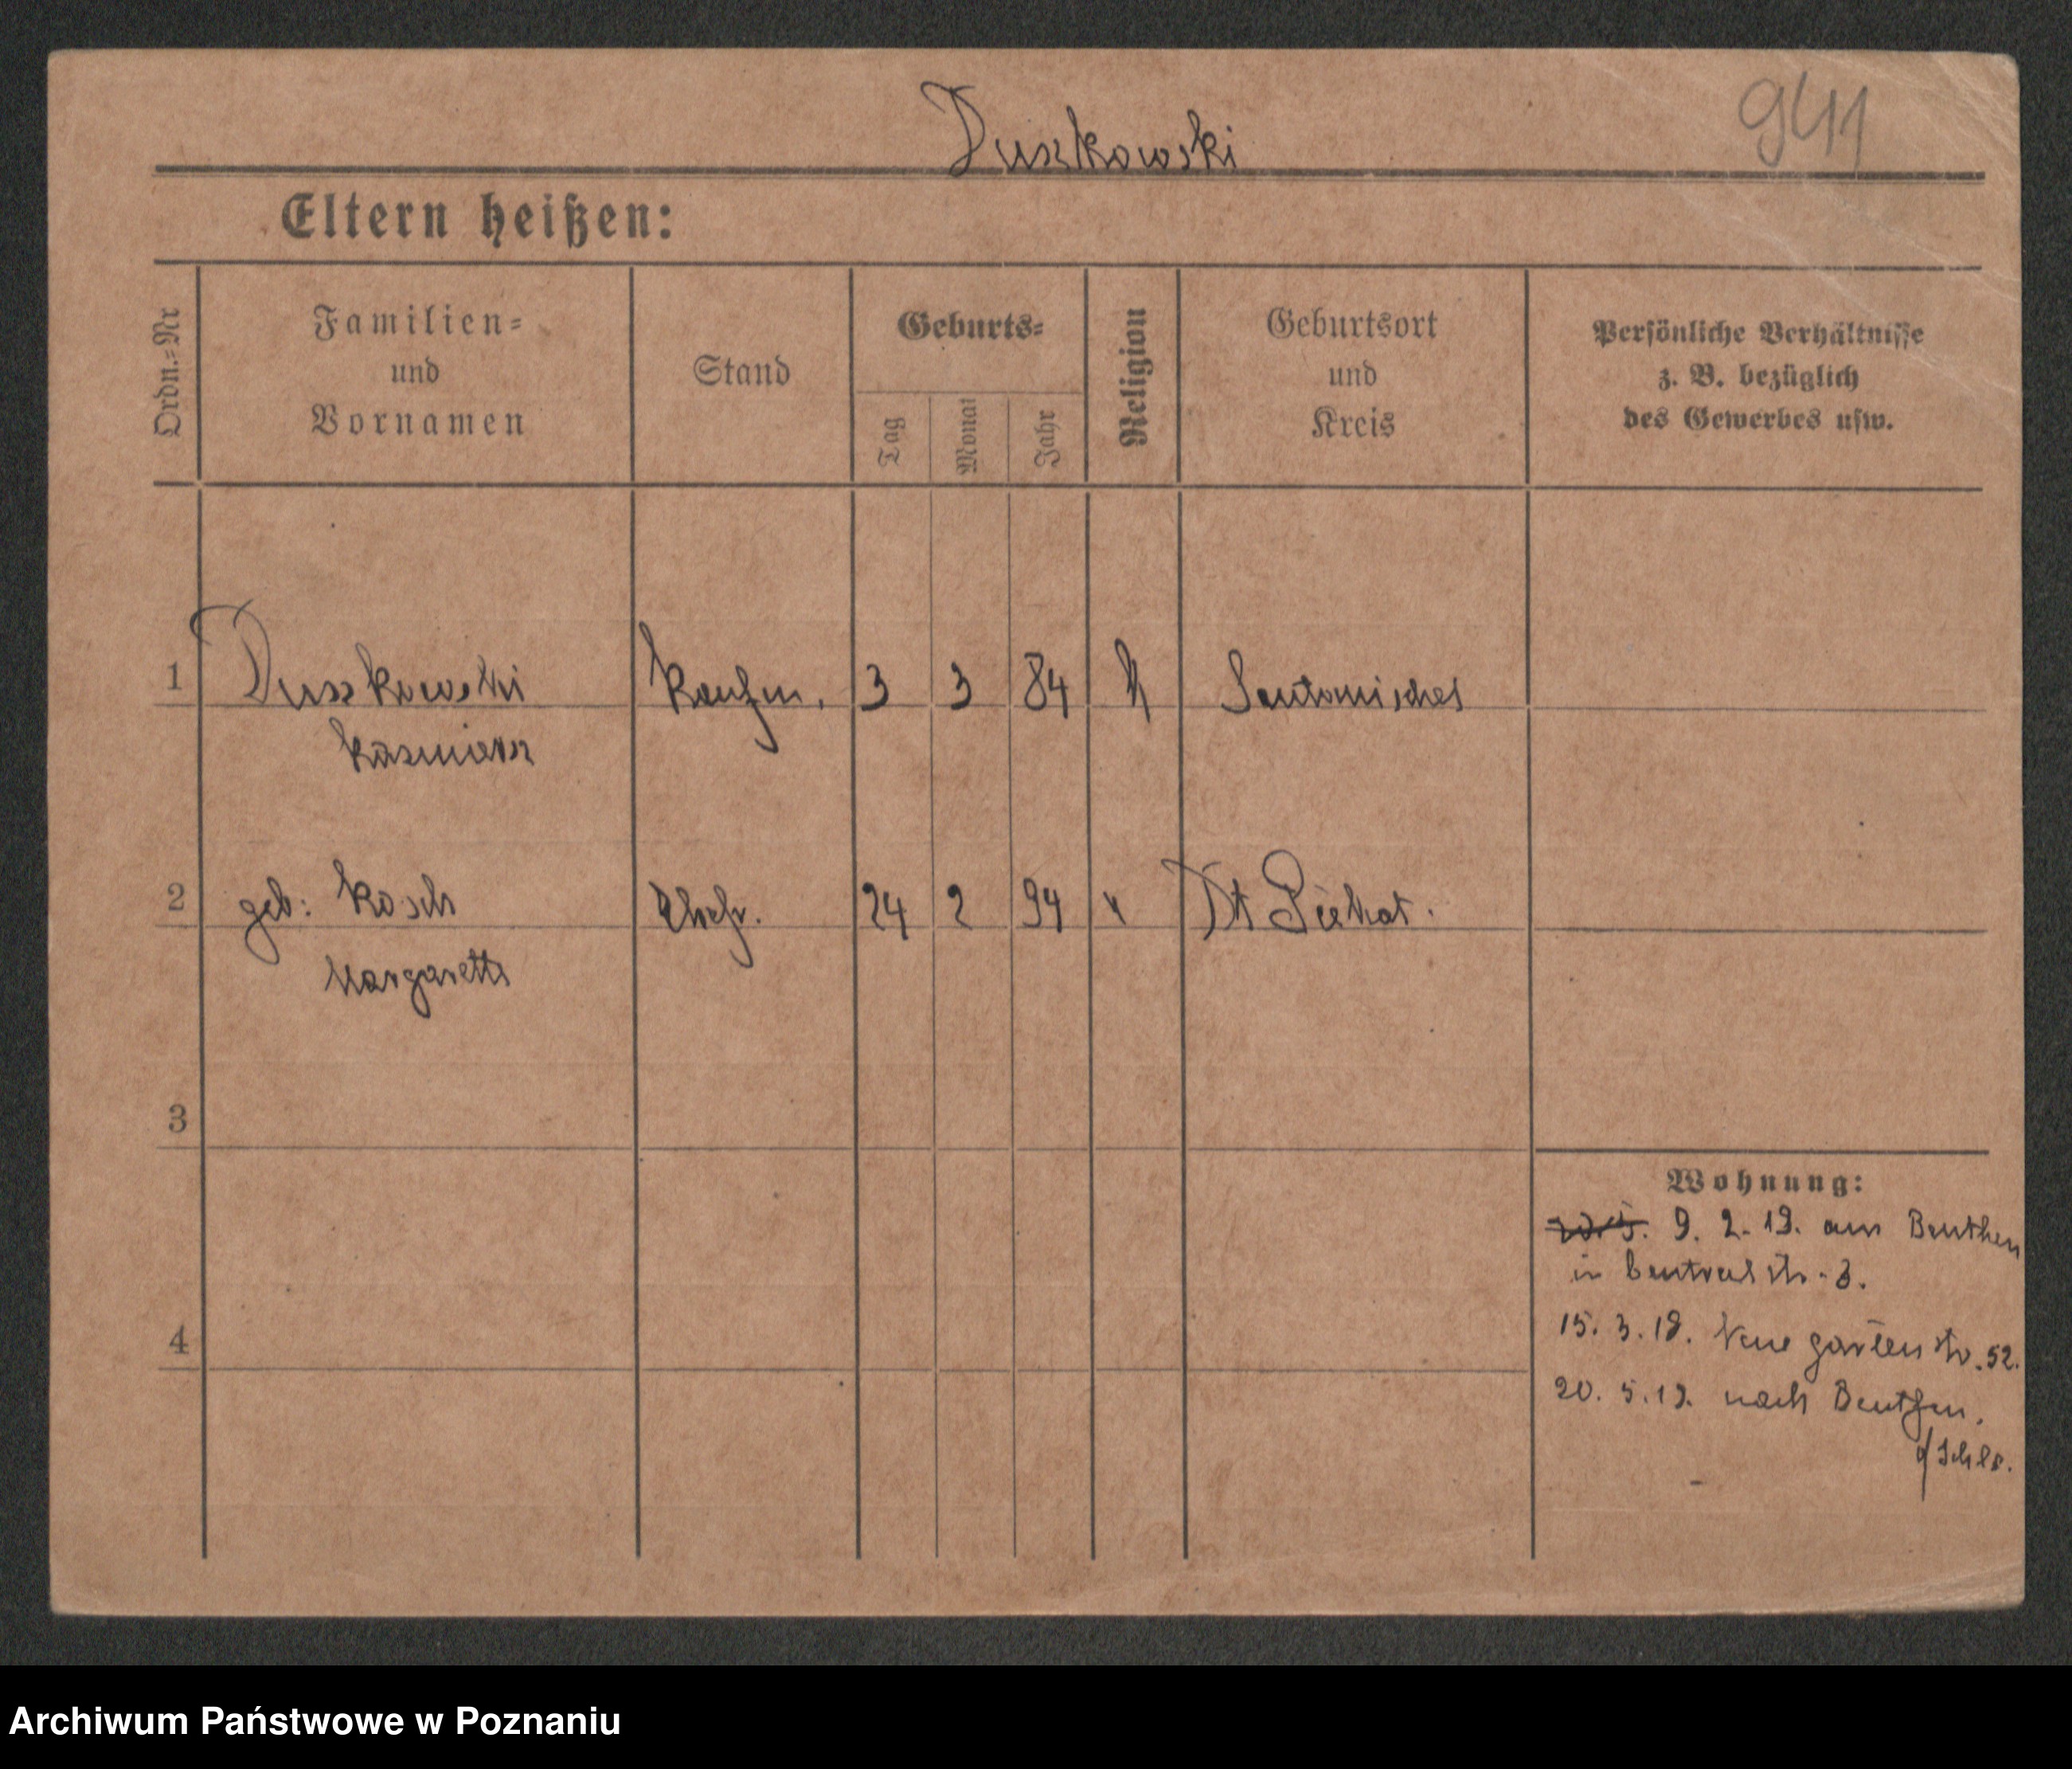 Duszkowski
941
Eltern heißen:
Ordn.=Nr
Familien=
und
Vornamen
Stand
Geburts=
Tag
Monat
Jahr
Religion
Geburtsort
und
Kreis
Persönliche Verhältnisse
z. B. bezüglich
des Gewerbes usw.
1 Duszkowski Kaufm. 3 3 84 k
Kasimir
2 geb: Kosch Ehefr. 24 2 94 Dt Piekar.
Margarethe
3
4
Wohnung:
9. 2. 19. aus Beuthen
in Centralstr. 3.
15. 3. 19. Neue Gartenstr. 52.
20. 5. 19. nach Beuthen.
o/Schls.
Archiwum Państwowe w Poznaniu